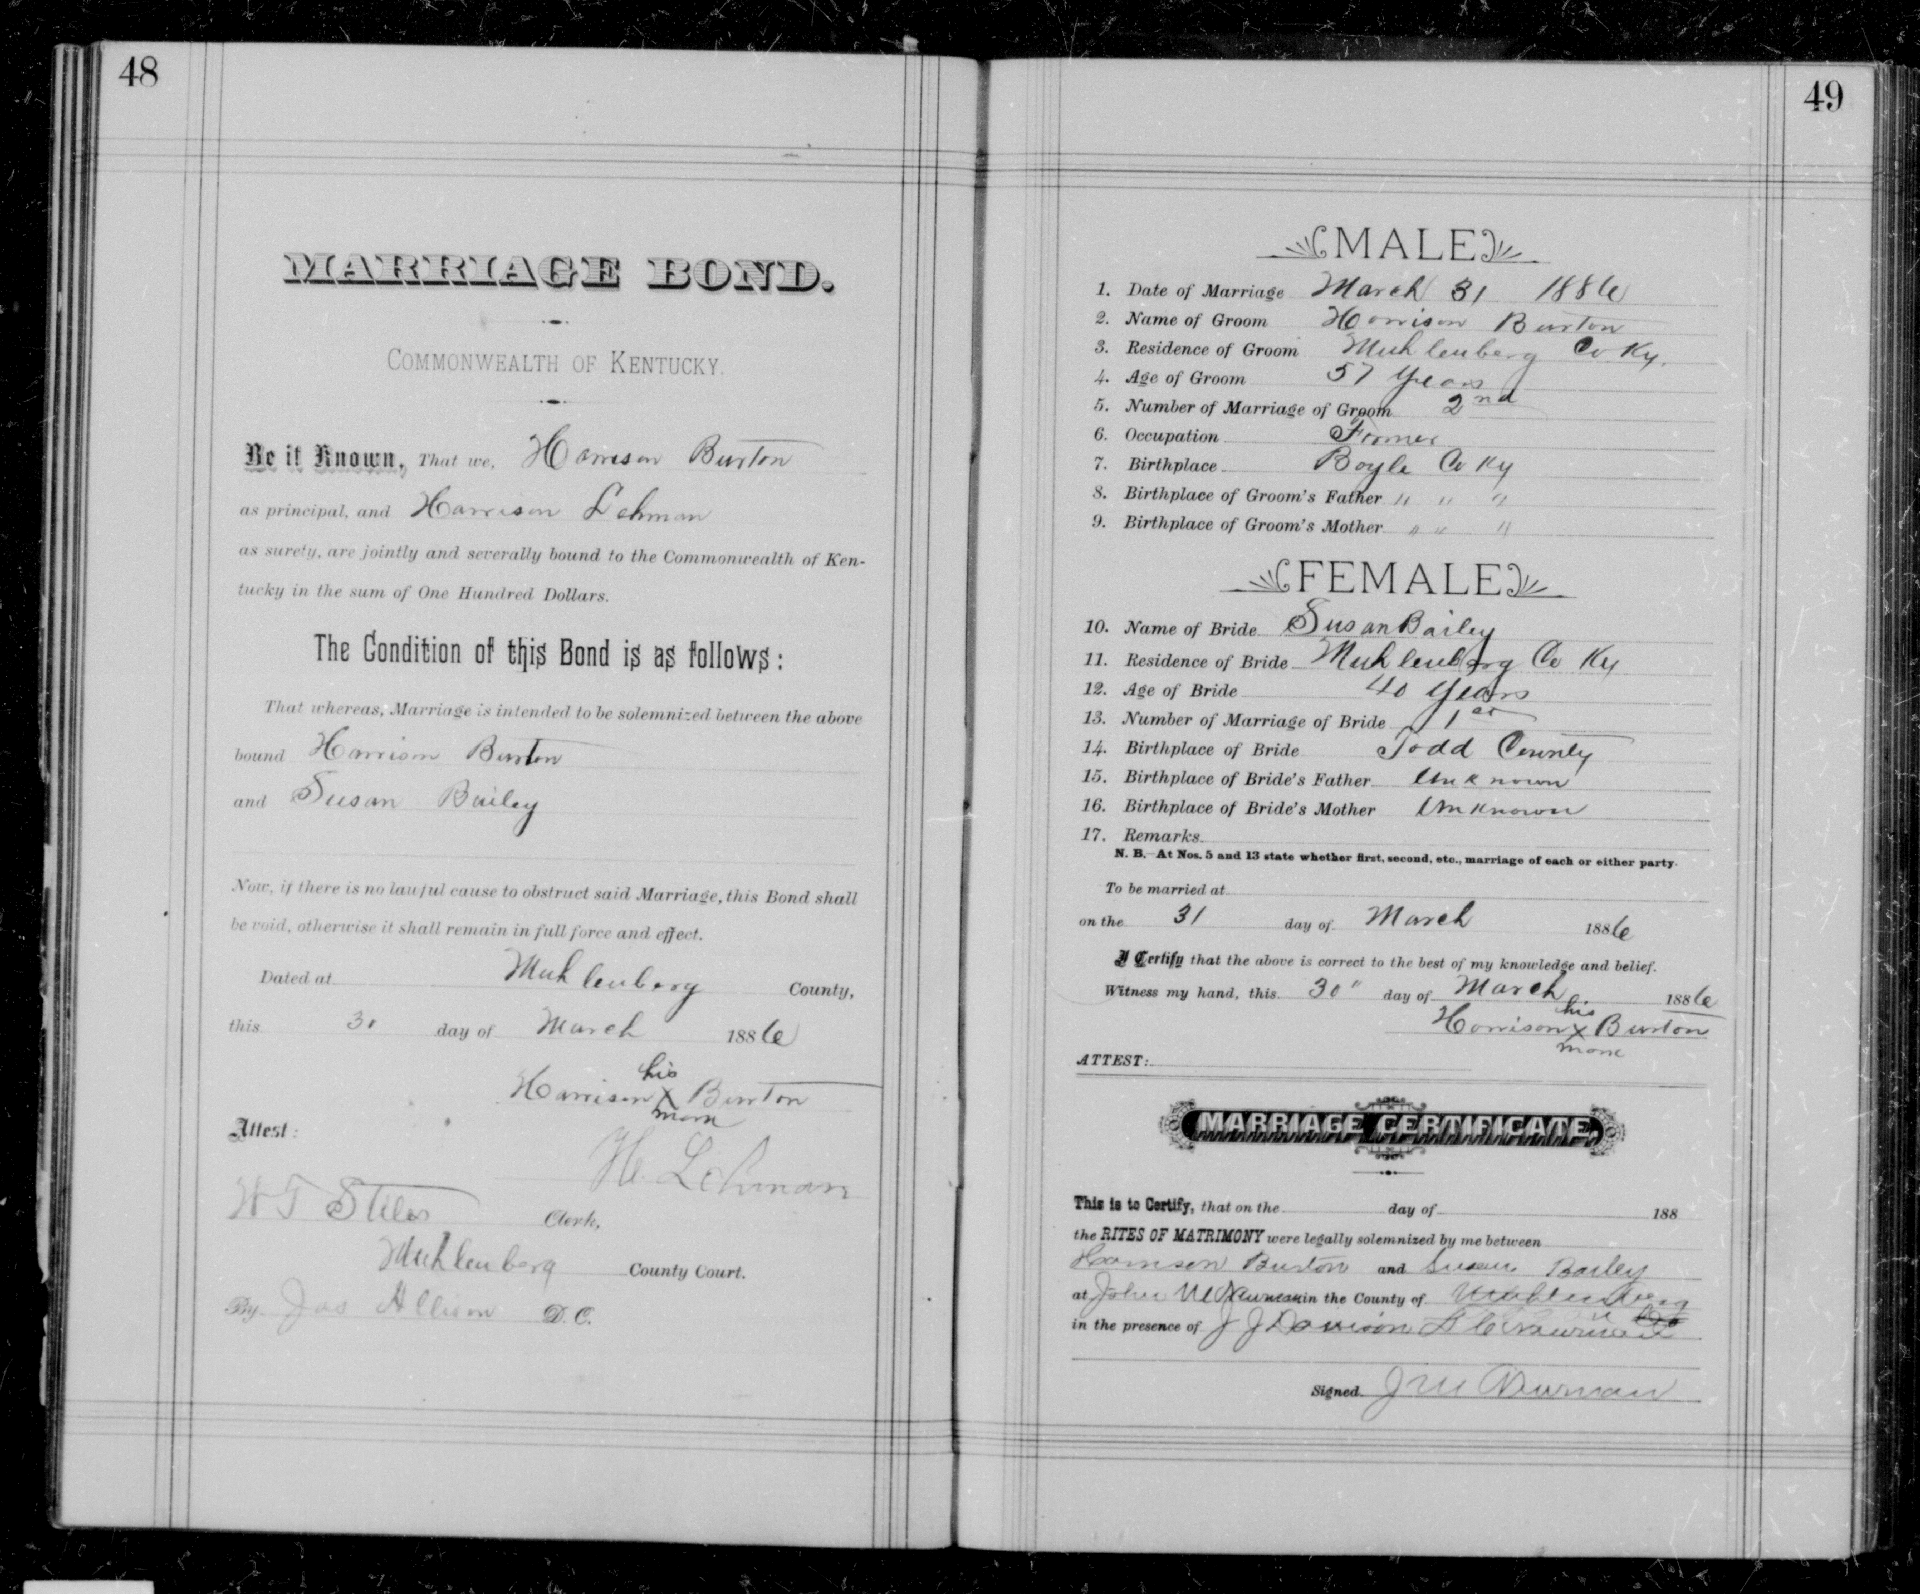 48
MARRIAGE BOND.
COMMONWEALTH OF KENTUCKY.
Be it Known, That we, Harrison Burton
as principal, and Harrison Lehman
as surety, are jointly and severally bound to the Commonwealth of Ken-
tucky in the sum of One Hundred Dollars.
The Condition of this Bond is as follows:
That whereas, Marriage is intended to be solemnized between the above
bound Harrison Burton
and Susan Bailey
Now, if there is no lawful cause to obstruct said Marriage, this Bond shall
be void, otherwise it shall remain in full force and effect.
Dated at Muhlenberg County,
this 30 day of March 1886
his
Harrison X Burton
mark
Attest:
H. Lehman
W T Stiles Clerk,
Muhlenberg County Court.
By Jas Allison D. C.
49
MALE
1. Date of Marriage March 31 1886
2. Name of Groom Harrison Burton
3. Residence of Groom Muhlenberg Co Ky.
4. Age of Groom 57 years
5. Number of Marriage of Groom 2nd
6. Occupation Farmer
7. Birthplace Boyle Co Ky
8. Birthplace of Groom's Father " " "
9. Birthplace of Groom's Mother " " "
FEMALE
10. Name of Bride Susan Bailey
11. Residence of Bride Muhlenberg Co Ky
12. Age of Bride 40 years
13. Number of Marriage of Bride 1st
14. Birthplace of Bride Todd County
15. Birthplace of Bride's Father Unknown
16. Birthplace of Bride's Mother Unknown
17. Remarks
N. B. At Nos. 5 and 13 state whether first, second, etc., marriage of each or either party.
To be married at
on the 31 day of March 1886
I Certify that the above is correct to the best of my knowledge and belief.
Witness my hand, this 30" day of March 1886
his
Harrison X Burton
mark
ATTEST:
MARRIAGE CERTIFICATE.
This is to Certify, that on the day of 188
the RITES OF MATRIMONY were legally solemnized by me between
Harrison Burton and Susan Bailey
at John M Newman in the County of Muhlenberg
in the presence of J J Davison
Signed J M Newman